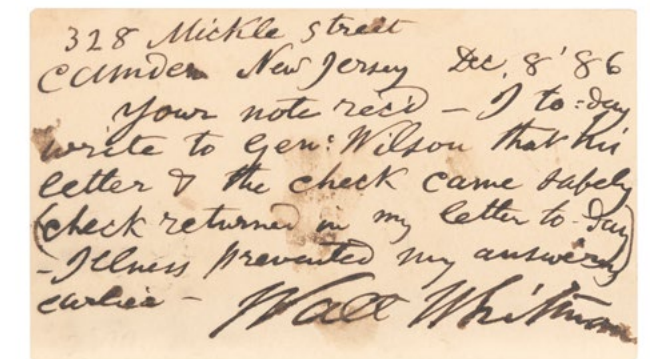 328 Mickle street
Camden New Jersey Dec. 8 '86
Your note rec'd – I to-day
write to Gen: Wilson that his
letter & the check came safely
(check returned in my letter to-day)
– Illness prevented my answering
earlier – Walt Whitman